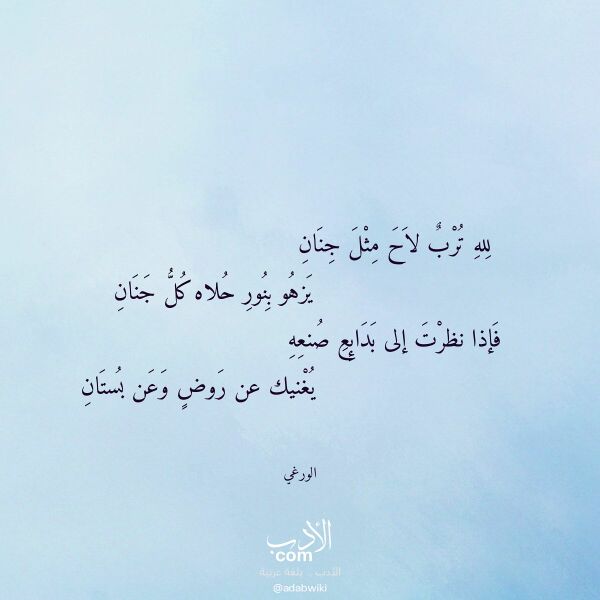 لِلهِ تُرْبٌ لاَحَ مِثْلَ جِنَانِ
يَزهُو بِنُورِ حُلاه كُلُّ جَنَانِ
فَإذا نظرْتَ إلى بَدَايِعِ صُنعِهِ
يُغْنيك عن رَوضٍ وَعَن بُستَانِ
الورغي
الأدب
com
الأدب .. بلغة عربية
@adabwiki